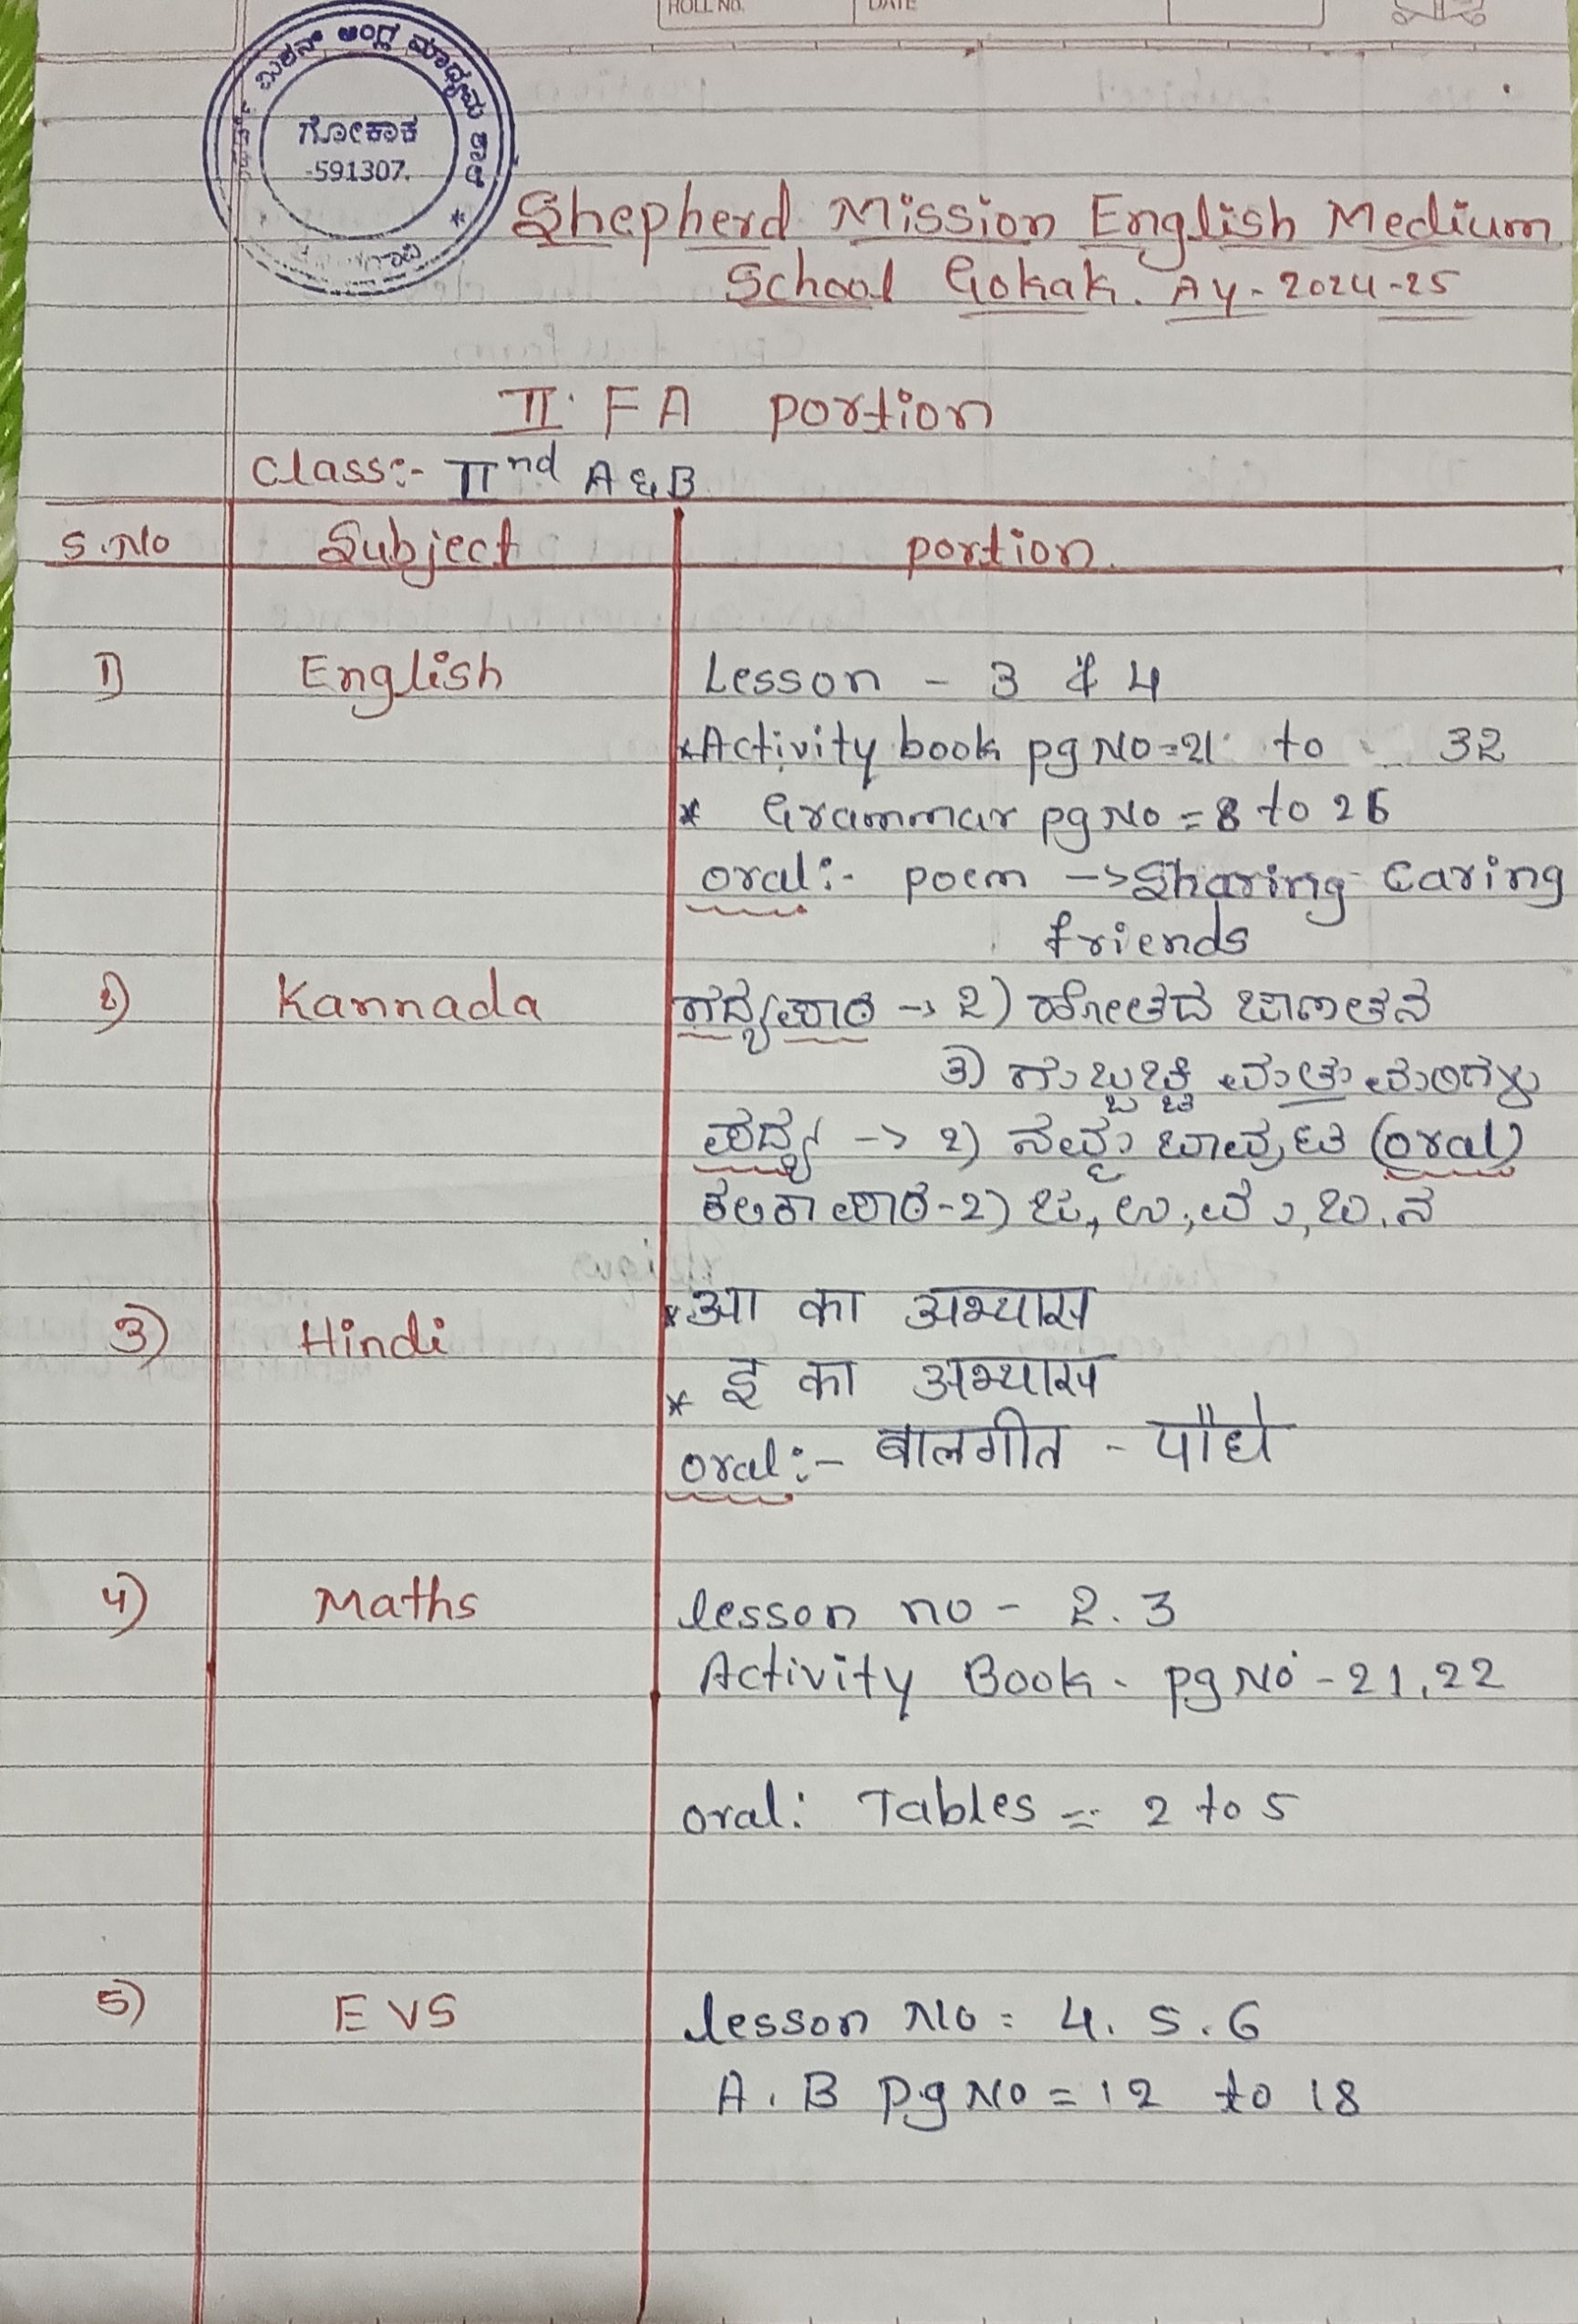 ROLL NO. DATE
ಮಿಶನ್ ಆಂಗ್ಲ ಮಾಧ್ಯಮ ಶಾಲೆ
ಗೋಕಾಕ
-591307.
Shepherd Mission English Medium
School Gokak. AY-2024-25
II. FA portion
Class:- IInd A & B
S.No Subject portion.
1) English Lesson - 3 & 4
*Activity book pg No=21 to 32
* Grammar pg No = 8 to 26
oral:- poem -> Sharing Caring
friends
2) Kannada ಗದ್ಯಪಾಠ -> 2) ಹೋತದ ಜಾಣತನ
3) ಗುಬ್ಬಚ್ಚಿ ಮತ್ತು ಮಂಗಗಳು
ಪದ್ಯ -> 2) ನಮ್ಮ ಬಾವುಟ (oral)
ಕಲಿಕಾ ಪಾಠ-2) ಜ, ಲ, ಮ, ಬ, ನ
3) Hindi *आ का अभ्यास
* इ का अभ्यास
oral:- बालगीत - पौधे
4) Maths lesson no - 2. 3
Activity Book - pg No - 21, 22
oral: Tables = 2 to 5
5) EVS lesson No = 4. 5. 6
A. B pg No = 12 to 18